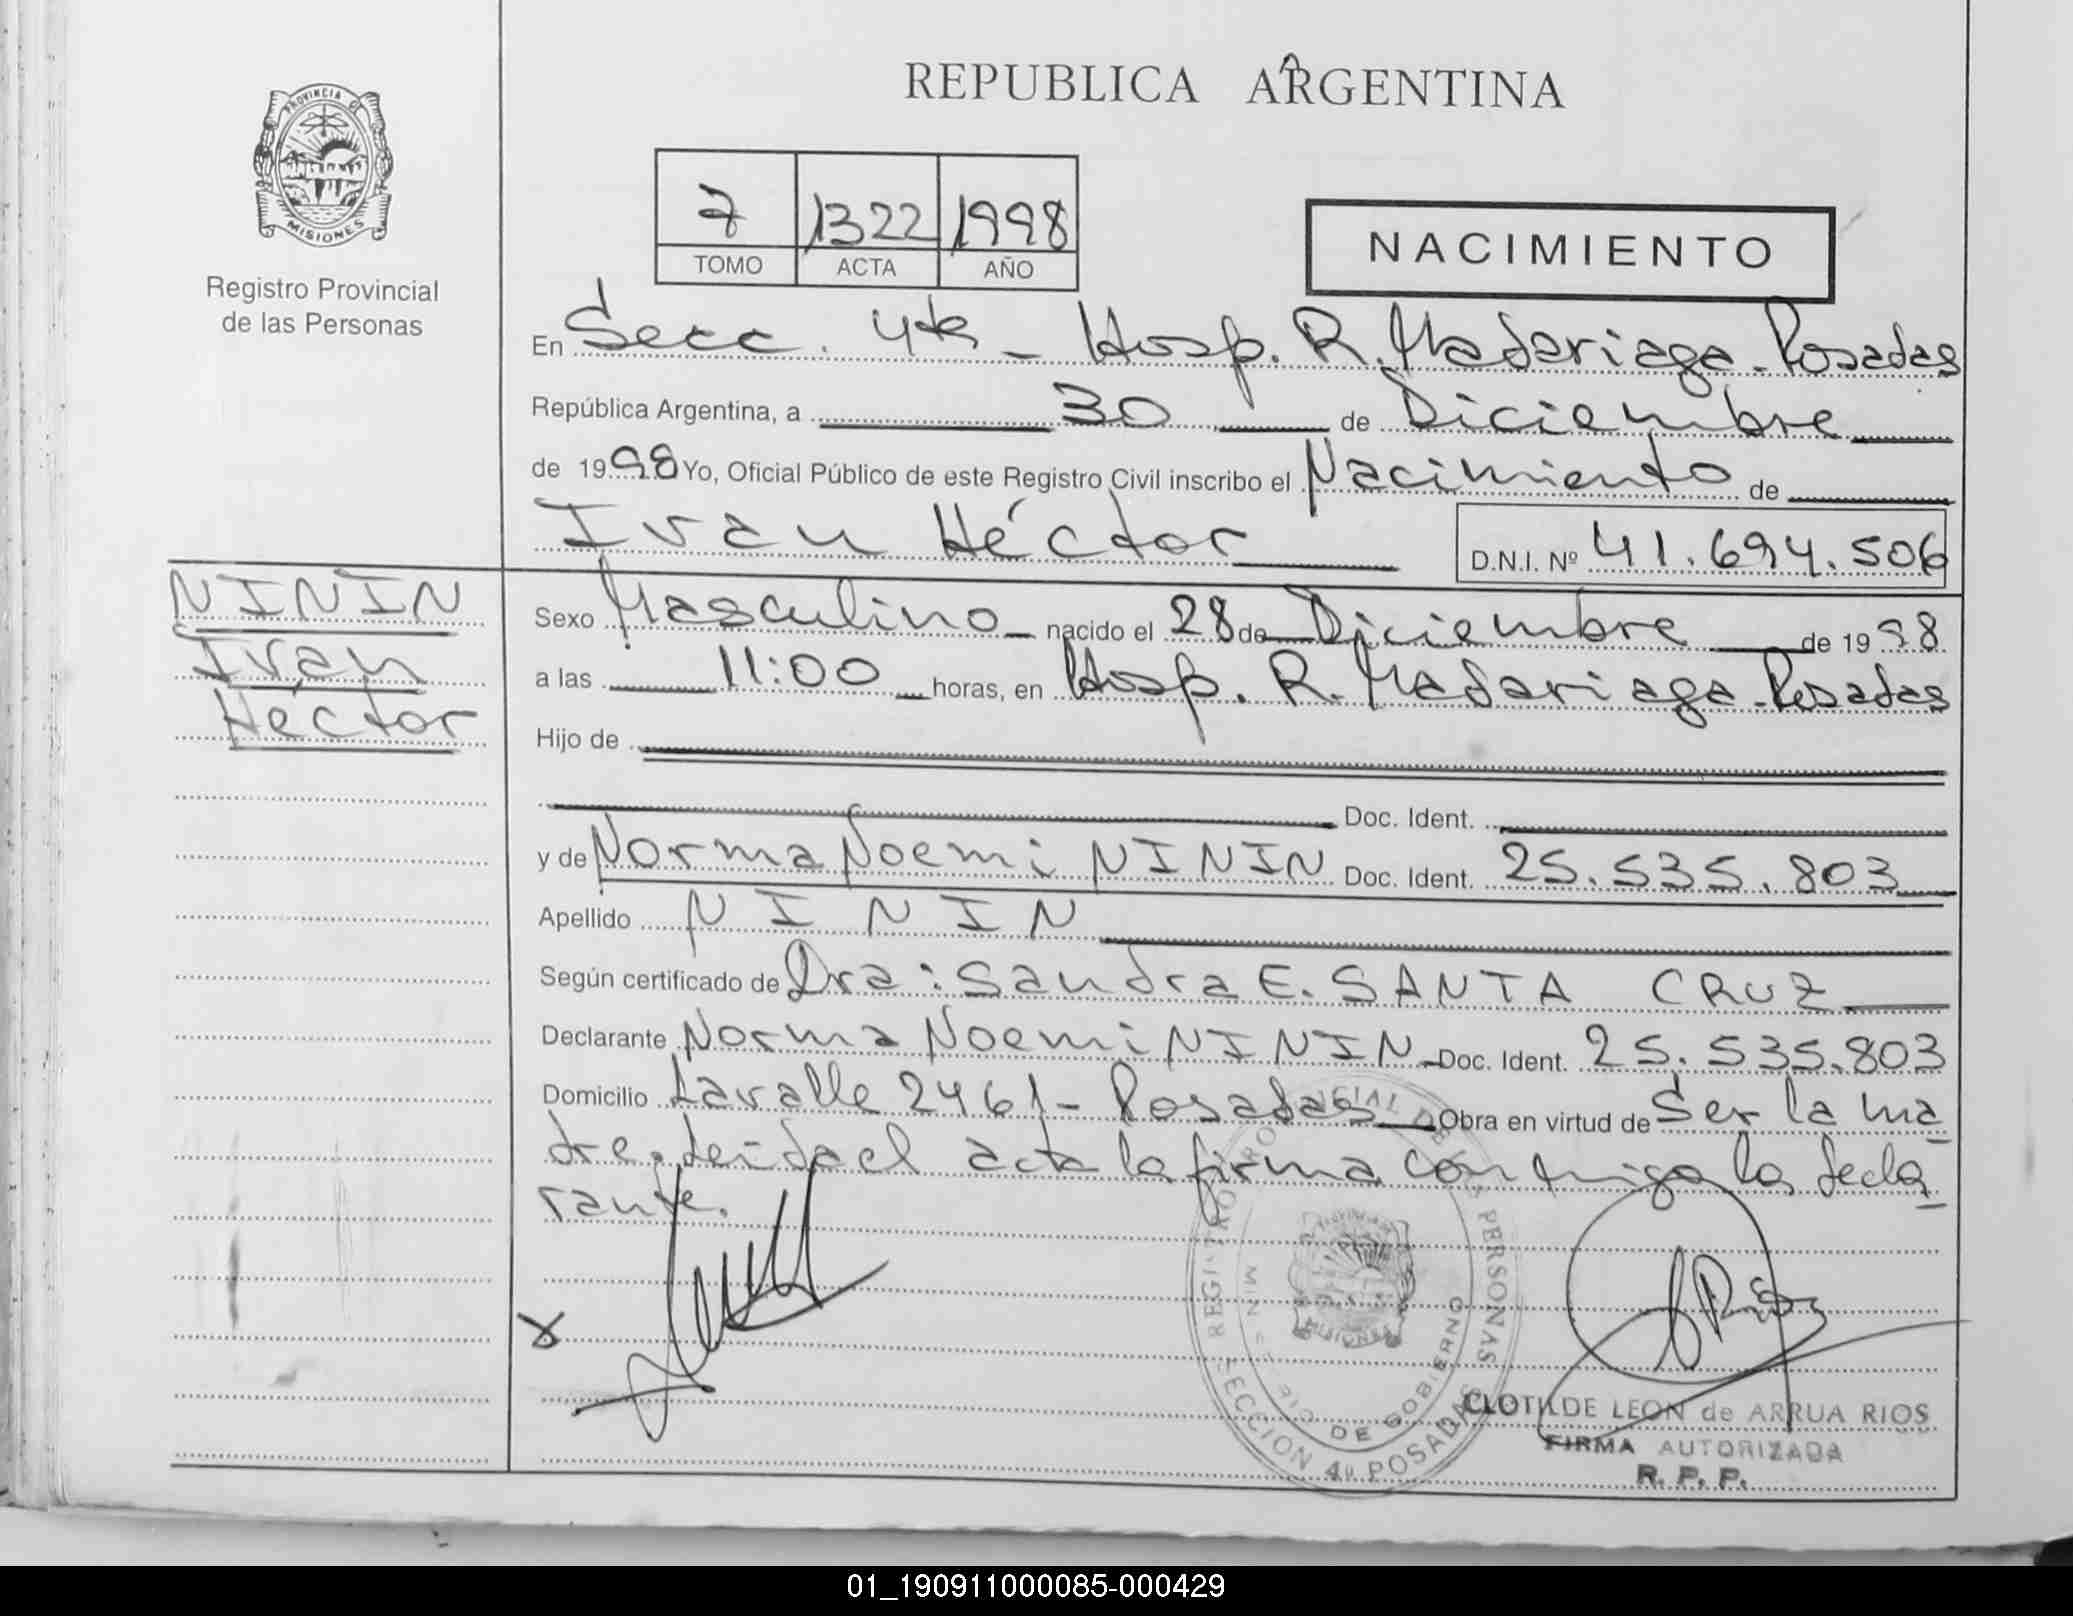 REPUBLICA ARGENTINA
PROVINCIA DE
MISIONES
Registro Provincial
de las Personas
7 1322 1998
TOMO ACTA AÑO
NACIMIENTO
En Secc. 4ta - Hosp. R. Madariaga - Posadas
República Argentina, a 30 de Diciembre
de 1998 Yo, Oficial Público de este Registro Civil inscribo el Nacimiento de
Ivan Héctor D.N.I. Nº 41.694.506
NININ
Ivan
Héctor
Sexo Masculino nacido el 28 de Diciembre de 1998
a las 11:00 horas, en Hosp. R. Madariaga - Posadas
Hijo de
Doc. Ident.
y de Norma Noemi NININ Doc. Ident. 25.535.803
Apellido NININ
Según certificado de Dra: Sandra E. SANTA CRUZ
Declarante Norma Noemi NININ Doc. Ident. 25.535.803
Domicilio Lavalle 2461 - Posadas Obra en virtud de Ser la ma
dre, leida el acta la firma conmigo la decla
rante.
REGISTRO PROVINCIAL DE LAS PERSONAS
MINISTERIO DE GOBIERNO
MISIONES
SECCION 4º POSADAS
CLOTILDE LEON de ARRUA RIOS
FIRMA AUTORIZADA
R. P. P.
01_190911000085-000429